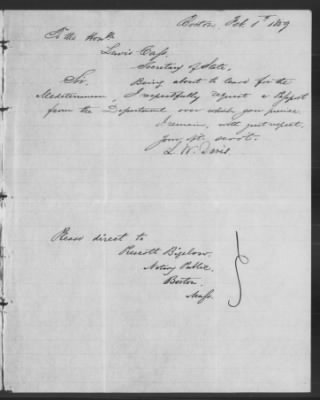 Boston, Feb. 1st 1859
To the Honble.
Lewis Cass.
Secretary of State,
Sir. Being about to leave for the
Mediterranean, I respectfully request a Passport
from the Department over which you preside.
I remain, with great respect.
Your obt. servt.
L. W. Davis.
Please direct to
Prescott Bigelow,
Notary Public,
Boston
Mass.